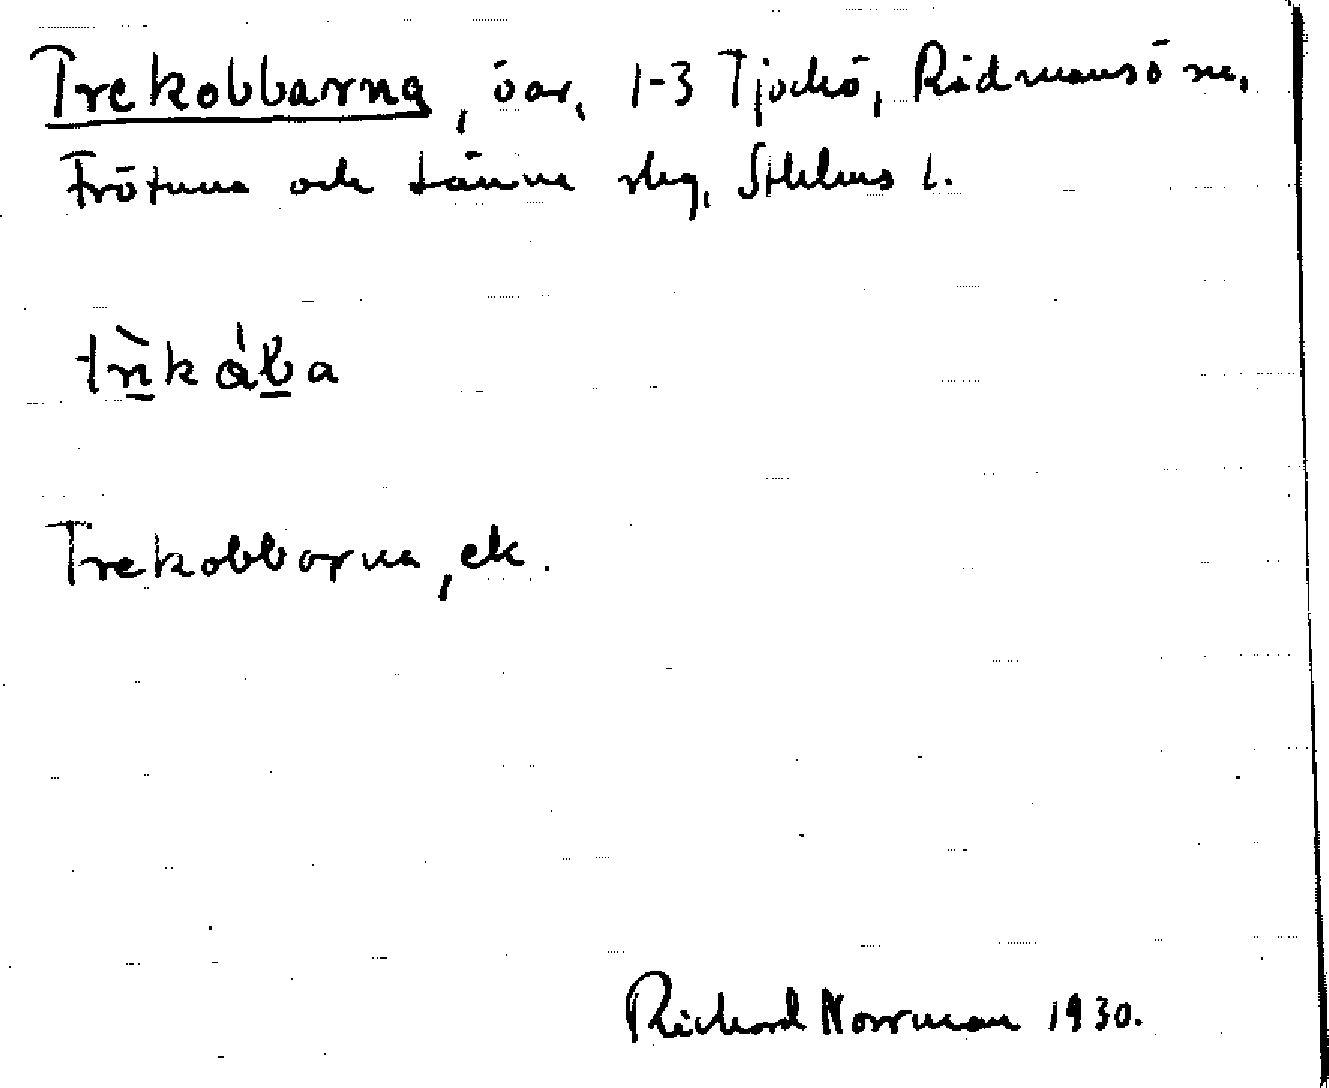 Trekobbarna, öar, 1-3 Tjockö, Rådmansö sn,
Frötuna och Länna slg, Sthlms l.
Trekobbarna, ek.
Richard Norrman 1930.